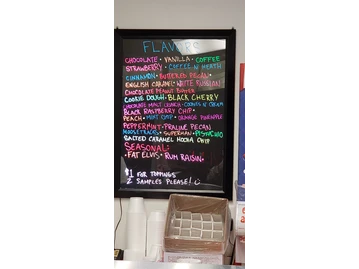 FLAVORS
CHOCOLATE • VANILLA • COFFEE
STRAWBERRY • COFFEE N' HEATH
CINNAMON • BUTTERED PECAN •
ENGLISH CARAMEL • WHITE RUSSIAN
CHOCOLATE PEANUT BUTTER
COOKIE DOUGH • BLACK CHERRY
CHOCOLATE MALT CRUNCH • COOKIES N' CREAM
BLACK RASPBERRY CHIP •
PEACH • MINT CHIP • ORANGE PINEAPPLE
PEPPERMINT • PRALINE PECAN
MOOSETRACKS • SUPERMAN • PISTACHIO
SALTED CARAMEL MOCHA CHIP
SEASONAL:
• FAT ELVIS • RUM RAISIN •
$1 FOR TOPPINGS
2 SAMPLES PLEASE! :)